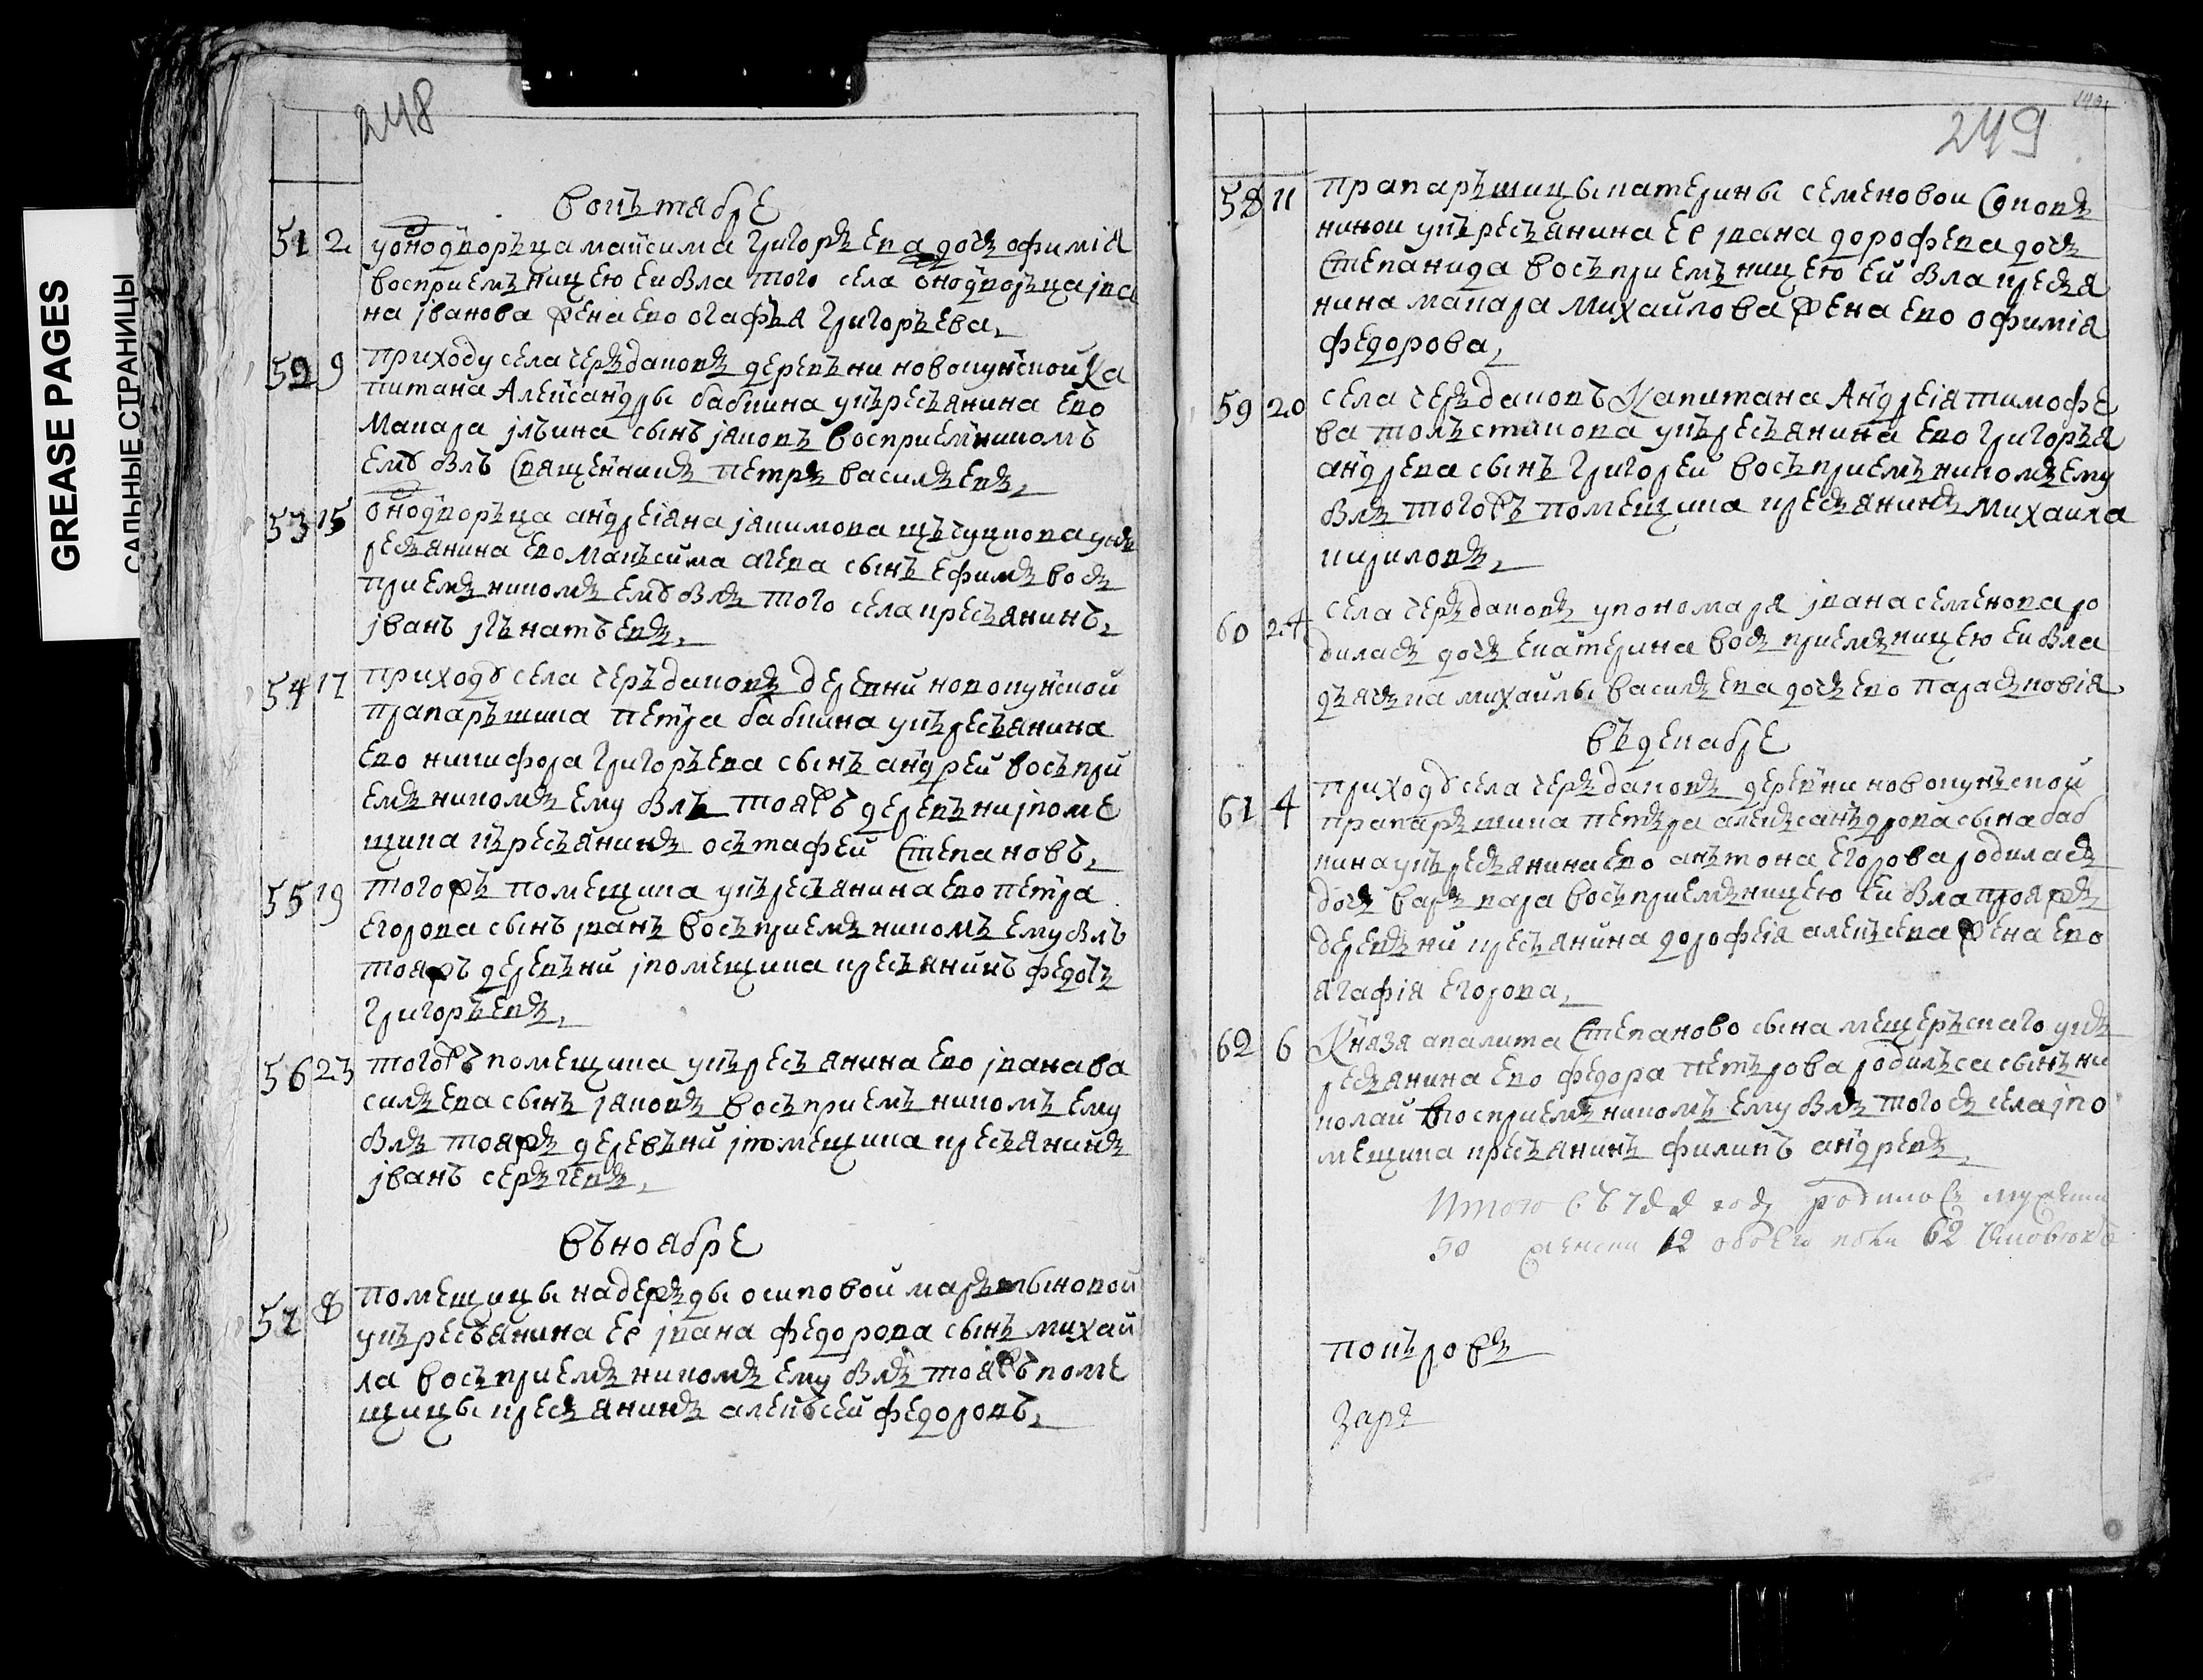 GREASE PAGES
САЛЬНЫЕ СТРАНИЦЫ
248
вокътабре
51 2 уоднодворъца максима григорьева дочь офимія
восприемъницею ей была того села однодворъца ива
на іванова жена ево огафья григорьева,
52 9 приходу села черъдаковъ деревъни новокунской ка
питана Александры бабкина укъресьянина ево
Макара ільина сынъ іяковъ восприемникомъ
ему былъ священникъ петръ васильевъ,
53 15 однодворъца андреіяна іякимова укъ
ресьянина ево макъсима агева сынъ ефимъ вось
приемъникомъ ему былъ того села кресьянинъ,
іванъ ігънатьевъ,
54 17 приходу села черъдаковъ деревни новокунской
прапаръшика петра бабкина укъресьянина
ево никифора григорьева сынъ андрей восьпри
емъникомъ ему былъ тояжъ деревъни іпоме
щика къресьянинъ осътафей степановъ,
55 19 тогожъ помещика укъресьянина ево петра
егорова сынъ іванъ восьприемъникомъ ему былъ
тояжъ деревъни іпомещика кресьянинъ федотъ
григорьевъ,
56 23 тогожъ помещика укъресьянина ево івана ва
сильева сынъ іяковъ восьприемъникомъ ему
былъ тояжъ деревъни іпомещика кресьянинъ
іванъ серьгевъ,
въноябре
57 8 помещицы надежъды осиповой маръ
укъресьянина ее івана федорова сынъ михай
ла восьприемъникомъ ему былъ тояжъ поме
щицы кресьянинъ алексъей федоровъ,
249
58 11 прапаръшицы катерины семеновой соковъ
ниной укъресьянина ее івана дорофева дочь
степанида восьприемъницею ей была кресья
нина макара михайлова жена ево офимія
федорова,
59 20 села черъдаковъ капитана Андреія тимофе
ва толъстикова укъресьянина ево григорья
андрева сынъ григорей восьприемъникомъ ему
былъ тогожъ помещика кресьянинъ михаила
кириловъ,
60 24 села черъдаковъ упономаря івана семенова ро
дилась дочь екатерина восьприемъницею ей была
дъячька михайлы васильева дочь ево параськовія
въдекабре
61 4 приходу села черъдаковъ деревни новокунъской
прапаръшика петъра алексанъдрова сына баб
кина укъресьянина ево анътона егорова родилась
дочь варъвара восьприемъницею ей была тояжъ
деревъни кресьянина дорофея алекъсева жена ево
ягафія егорова,
62 6 Князя аполита степаново сына мещеръскаго укъ
ресьянина ево федора петърова родилъса сынъ ни
колай восприемъникомъ ему былъ того села іпо
мещика кресьянинъ филипъ андревъ,
Итого въ году родилось мужеска
50 женска 12 обоего полу 62 человека
покъровъ